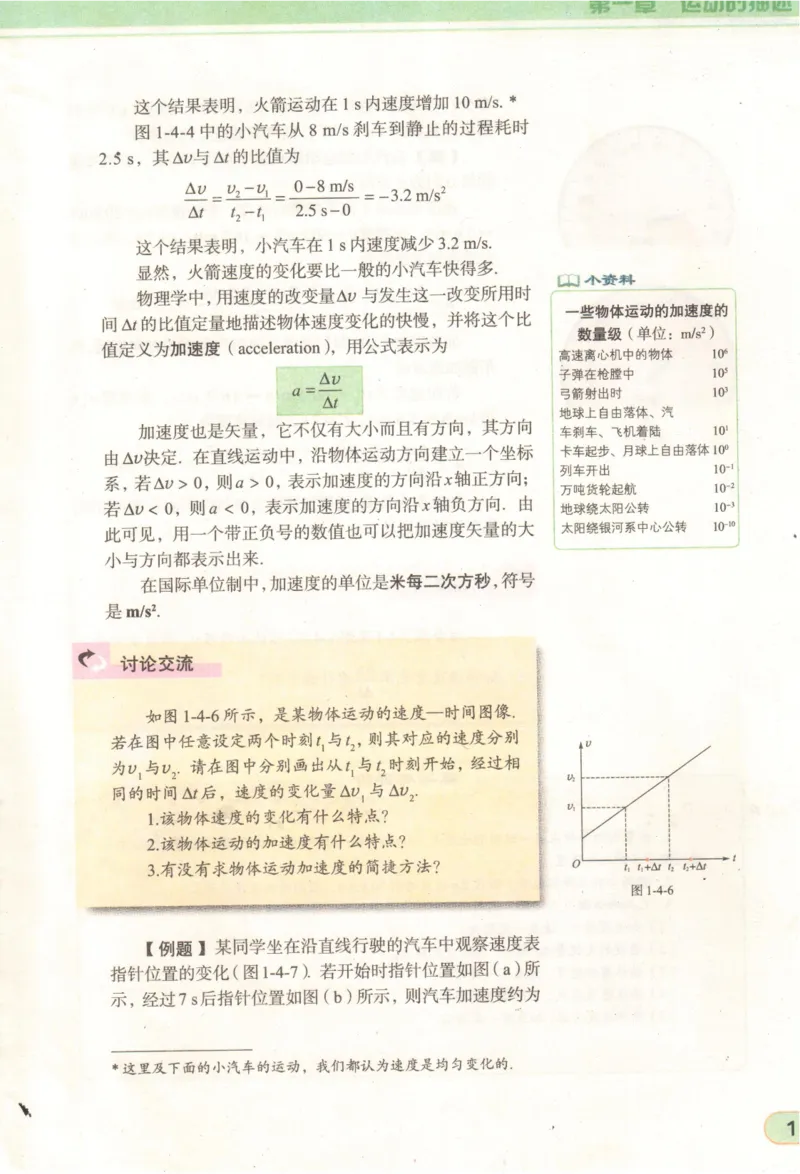 第一章 运动的描述
这个结果表明，火箭运动在 1 s 内速度增加 10 m/s. *
图 1-4-4 中的小汽车从 8 m/s 刹车到静止的过程耗时
2.5 s，其 Δv与 Δt 的比值为
Δv/Δt = (v₂-v₁)/(t₂-t₁) = (0-8 m/s)/(2.5 s-0) = -3.2 m/s²
这个结果表明，小汽车在 1 s 内速度减少 3.2 m/s.
显然，火箭速度的变化要比一般的小汽车快得多.
物理学中，用速度的改变量Δv 与发生这一改变所用时
间 Δt 的比值定量地描述物体速度变化的快慢，并将这个比
值定义为加速度（acceleration），用公式表示为
a = Δv/Δt
加速度也是矢量，它不仅有大小而且有方向，其方向
由 Δv决定. 在直线运动中，沿物体运动方向建立一个坐标
系，若Δv > 0，则a > 0，表示加速度的方向沿x轴正方向；
若Δv < 0，则a < 0，表示加速度的方向沿x轴负方向. 由
此可见，用一个带正负号的数值也可以把加速度矢量的大
小与方向都表示出来.
在国际单位制中，加速度的单位是米每二次方秒，符号
是 m/s².
小资料
一些物体运动的加速度的
数量级（单位：m/s²）
高速离心机中的物体 10⁶
子弹在枪膛中 10⁵
弓箭射出时 10³
地球上自由落体、汽
车刹车、飞机着陆 10¹
卡车起步、月球上自由落体 10⁰
列车开出 10⁻¹
万吨货轮起航 10⁻²
地球绕太阳公转 10⁻³
太阳绕银河系中心公转 10⁻¹⁰
讨论交流
如图 1-4-6 所示，是某物体运动的速度—时间图像.
若在图中任意设定两个时刻t₁与t₂，则其对应的速度分别
为v₁与v₂. 请在图中分别画出从t₁与t₂时刻开始，经过相
同的时间 Δt 后，速度的变化量 Δv₁ 与 Δv₂.
1.该物体速度的变化有什么特点？
2.该物体运动的加速度有什么特点？
3.有没有求物体运动加速度的简捷方法？
v
v₂
v₁
O t₁ t₁+Δt t₂ t₂+Δt t
图 1-4-6
【例题】某同学坐在沿直线行驶的汽车中观察速度表
指针位置的变化（图1-4-7）. 若开始时指针位置如图（a）所
示，经过7 s后指针位置如图（b）所示，则汽车加速度约为
*这里及下面的小汽车的运动，我们都认为速度是均匀变化的.
1